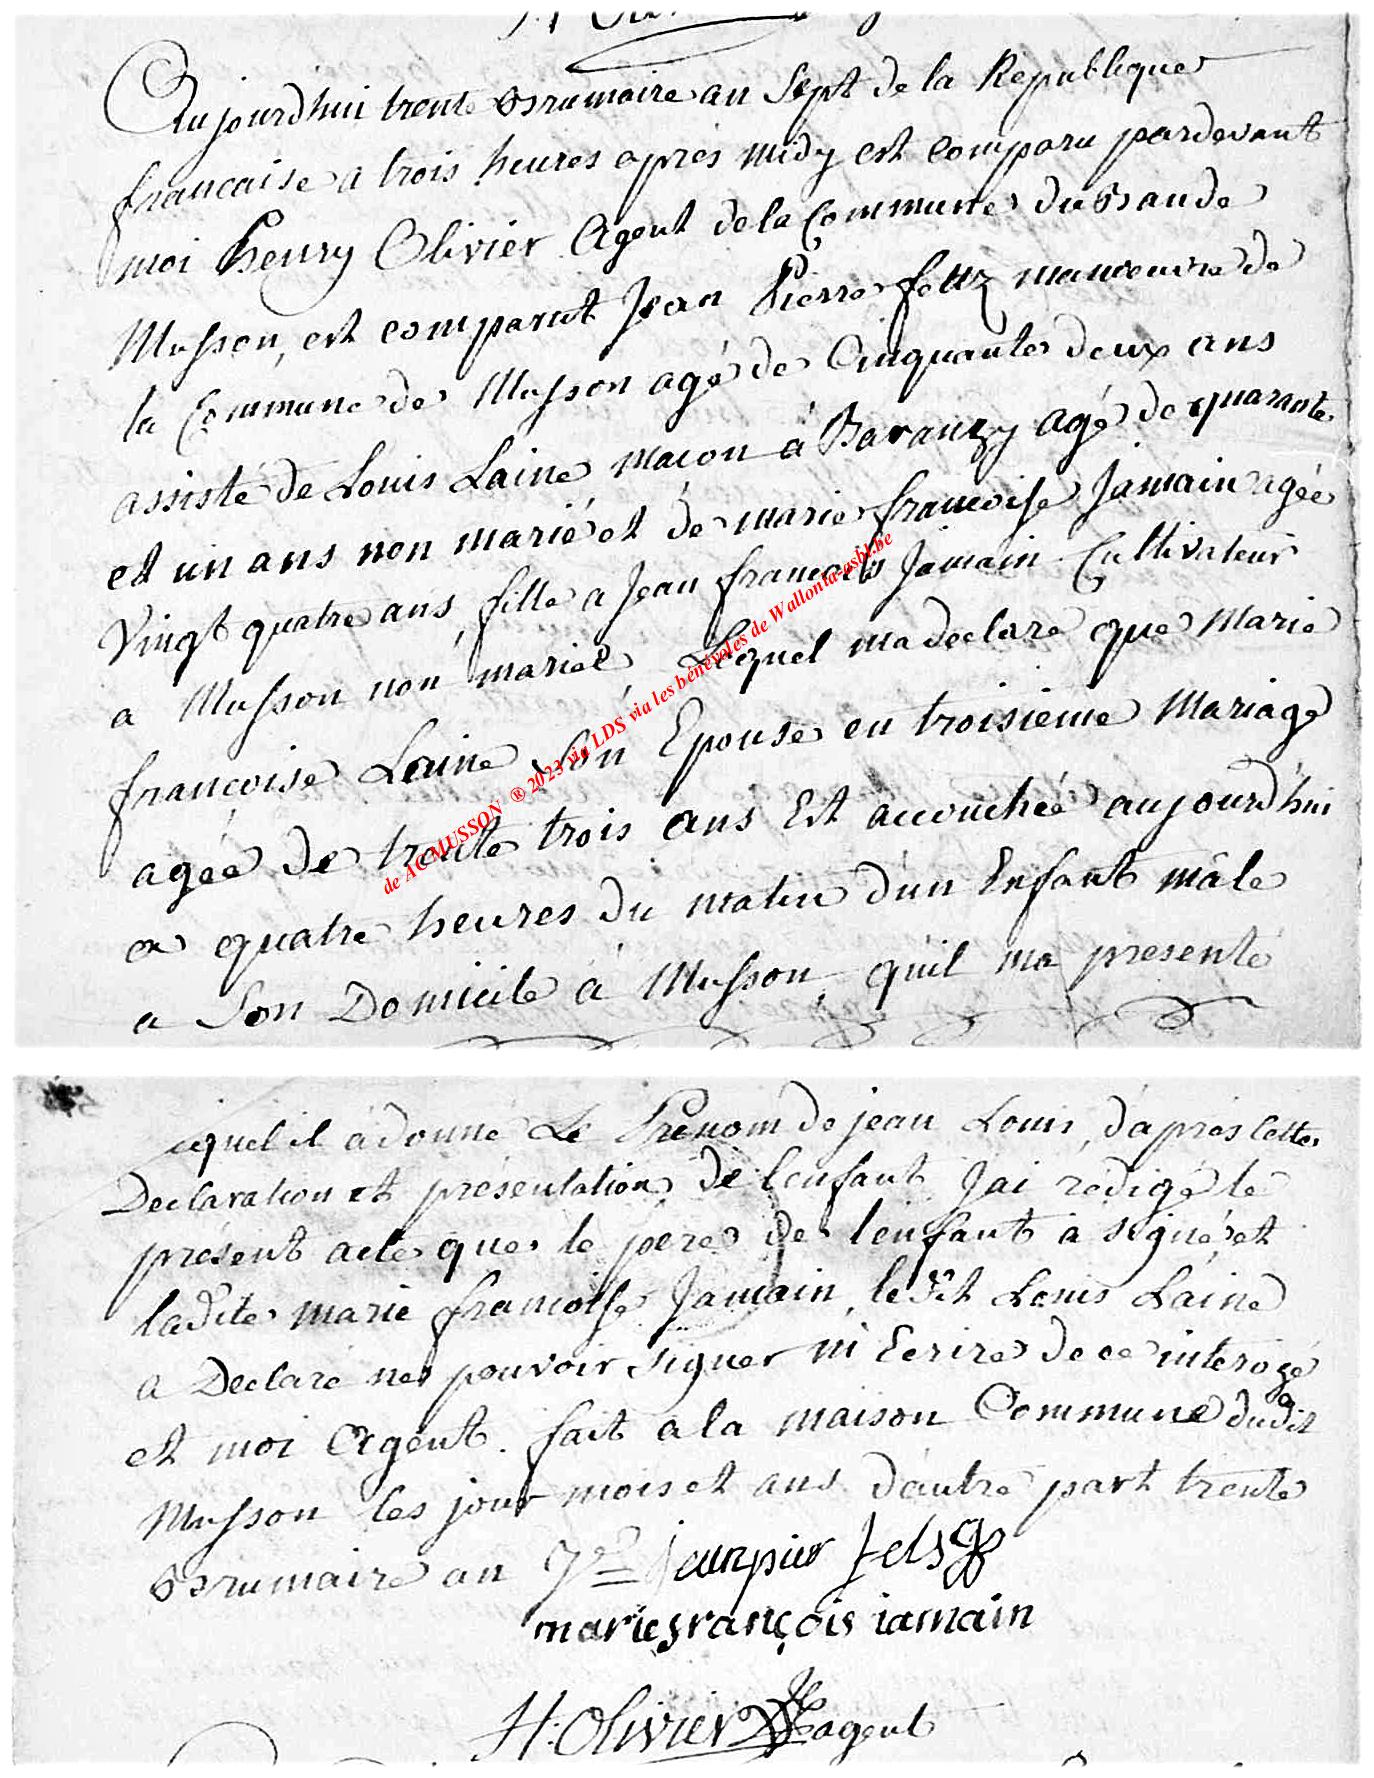 Aujourdhui trente Brumaire an Sept de la Republique
francaise a trois heures apres midy est comparu pardevant
moi henry Olivier Agent de la Commune du Bande
Musson, est comparut Jean Pierre feltz manoeuvre de
la Commune de Musson agé de Cinquante deux ans
assisté de Louis Laine macon à Baranzy agé de quarante
et un ans non marié et de marie francoise Jamain agée
Vingt quatre ans, fille a Jean francois Jamain Cultivateur
a Musson non mariée, Lequel ma declare que Marie
françoise Laine Son Epouse en troisieme Mariage
agée de trente trois ans Est accouchée aujourdhui
a quatre heures du matin d'un Enfant mâle
a Son Domicile à Musson, qu'il ma presenté
de ACMUSSON ® 2023 via LDS via les bénévoles de Wallonia-asbl.be
auquel il à donné Le Prénom de jean Louis, d'apres cette
Declaration et présentation de l'enfant Jai rédigé le
présent acte que le pere de l'enfant à signé et
ladite marie francoise Jamain, ledit Louis Laine
a Declaré ne pouvoir signer ni Ecrire de ce interogé
et moi Agent. fait a la maison Commune dudit
Musson les jour mois et ans d'autre part trente
Brumaire an 7e jeanpier fels
marie françois iamain
H. Olivier agent